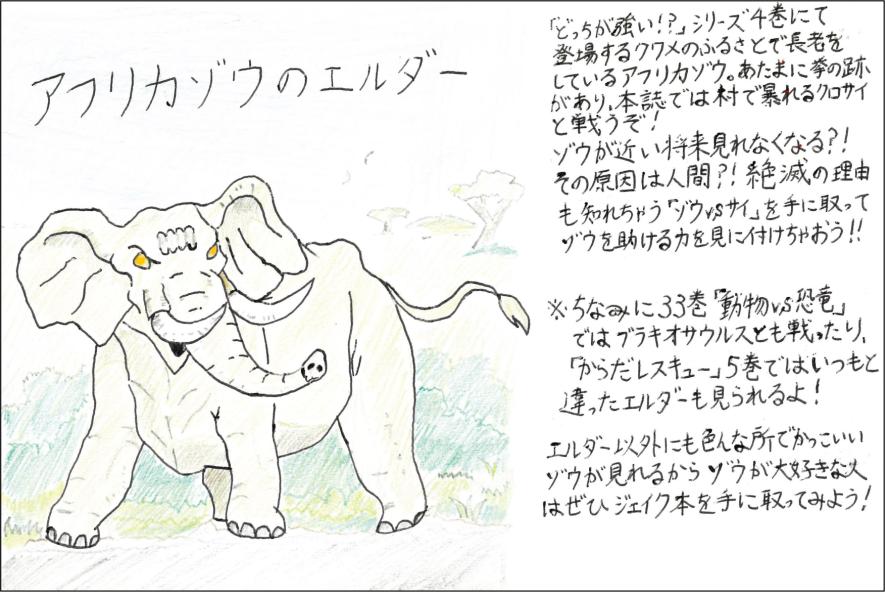 アフリカゾウのエルダー
「どっちが強い!?」シリーズ4巻にて
登場するクワメのふるさとで長老を
しているアフリカゾウ。あたまに拳の跡
があり、本誌では村で暴れるクロサイ
と戦うぞ!
ゾウが近い将来見れなくなる?!
その原因は人間?!絶滅の理由
も知れちゃう「ゾウvsサイ」を手に取って
ゾウを助ける力を見に付けちゃおう!!
※ちなみに33巻「動物vs恐竜」
ではブラキオサウルスとも戦ったり、
「からだレスキュー」5巻ではいつもと
違ったエルダーも見られるよ!
エルダー以外にも色んな所でかっこいい
ゾウが見れるからゾウが大好きな人
はぜひジェイク本を手に取ってみよう!